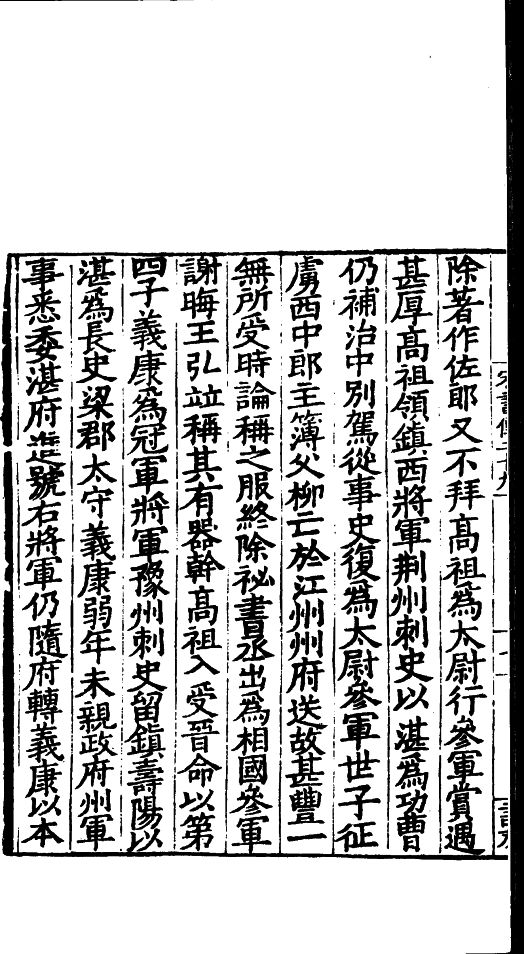 除著作佐郎又不拜髙祖爲太尉行參軍賞遇
甚厚髙祖領鎭西將軍荆州刺史以湛爲功曹
仍補治中别駕從事史復爲太尉參軍世子征
虜西中郎主簿父柳亡於江州州府送故甚豐一
無所受時論稱之服終除祕書丞出爲相國參軍
謝晦王弘竝稱其有器幹髙祖入受晉命以第
四子義康爲冠軍將軍豫州刺史留鎭壽陽以
湛爲長史梁郡太守義康弱年未親政府州軍
事悉委湛府進號右將軍仍隨府轉義康以本